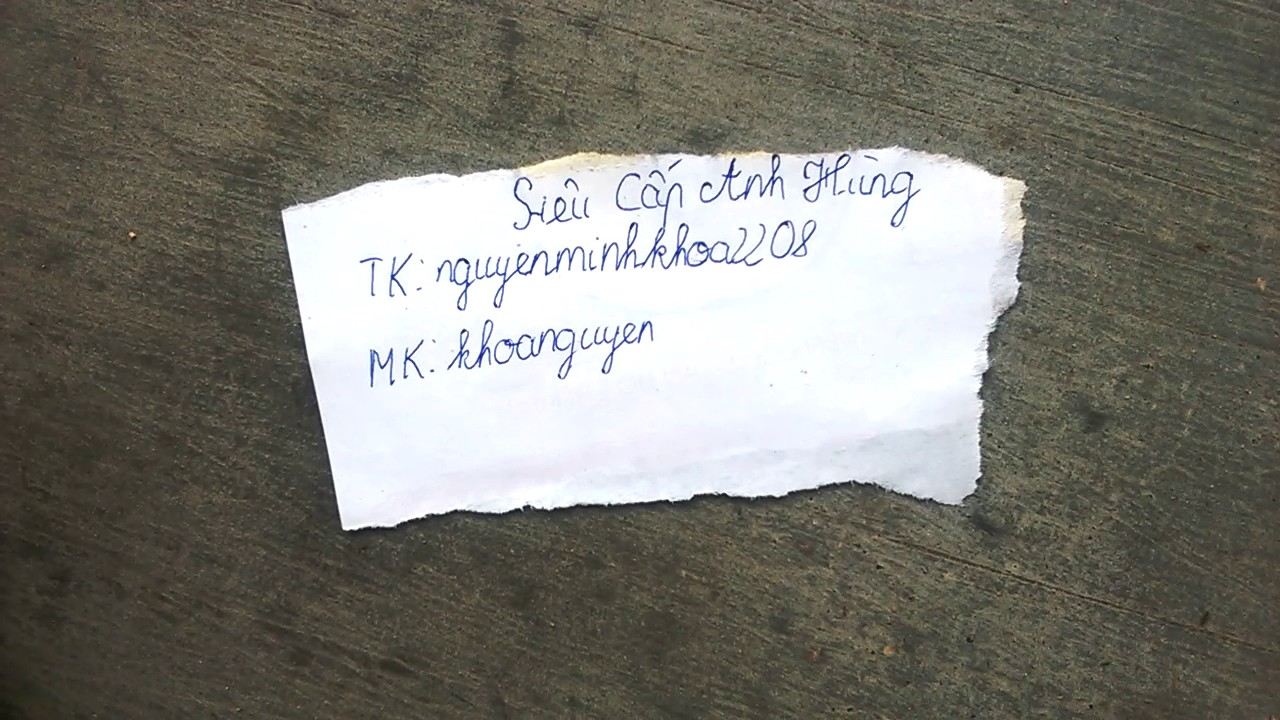 Siêu Cấp Anh Hùng
TK: nguyenminhkhoa2208
MK: khoanguyen